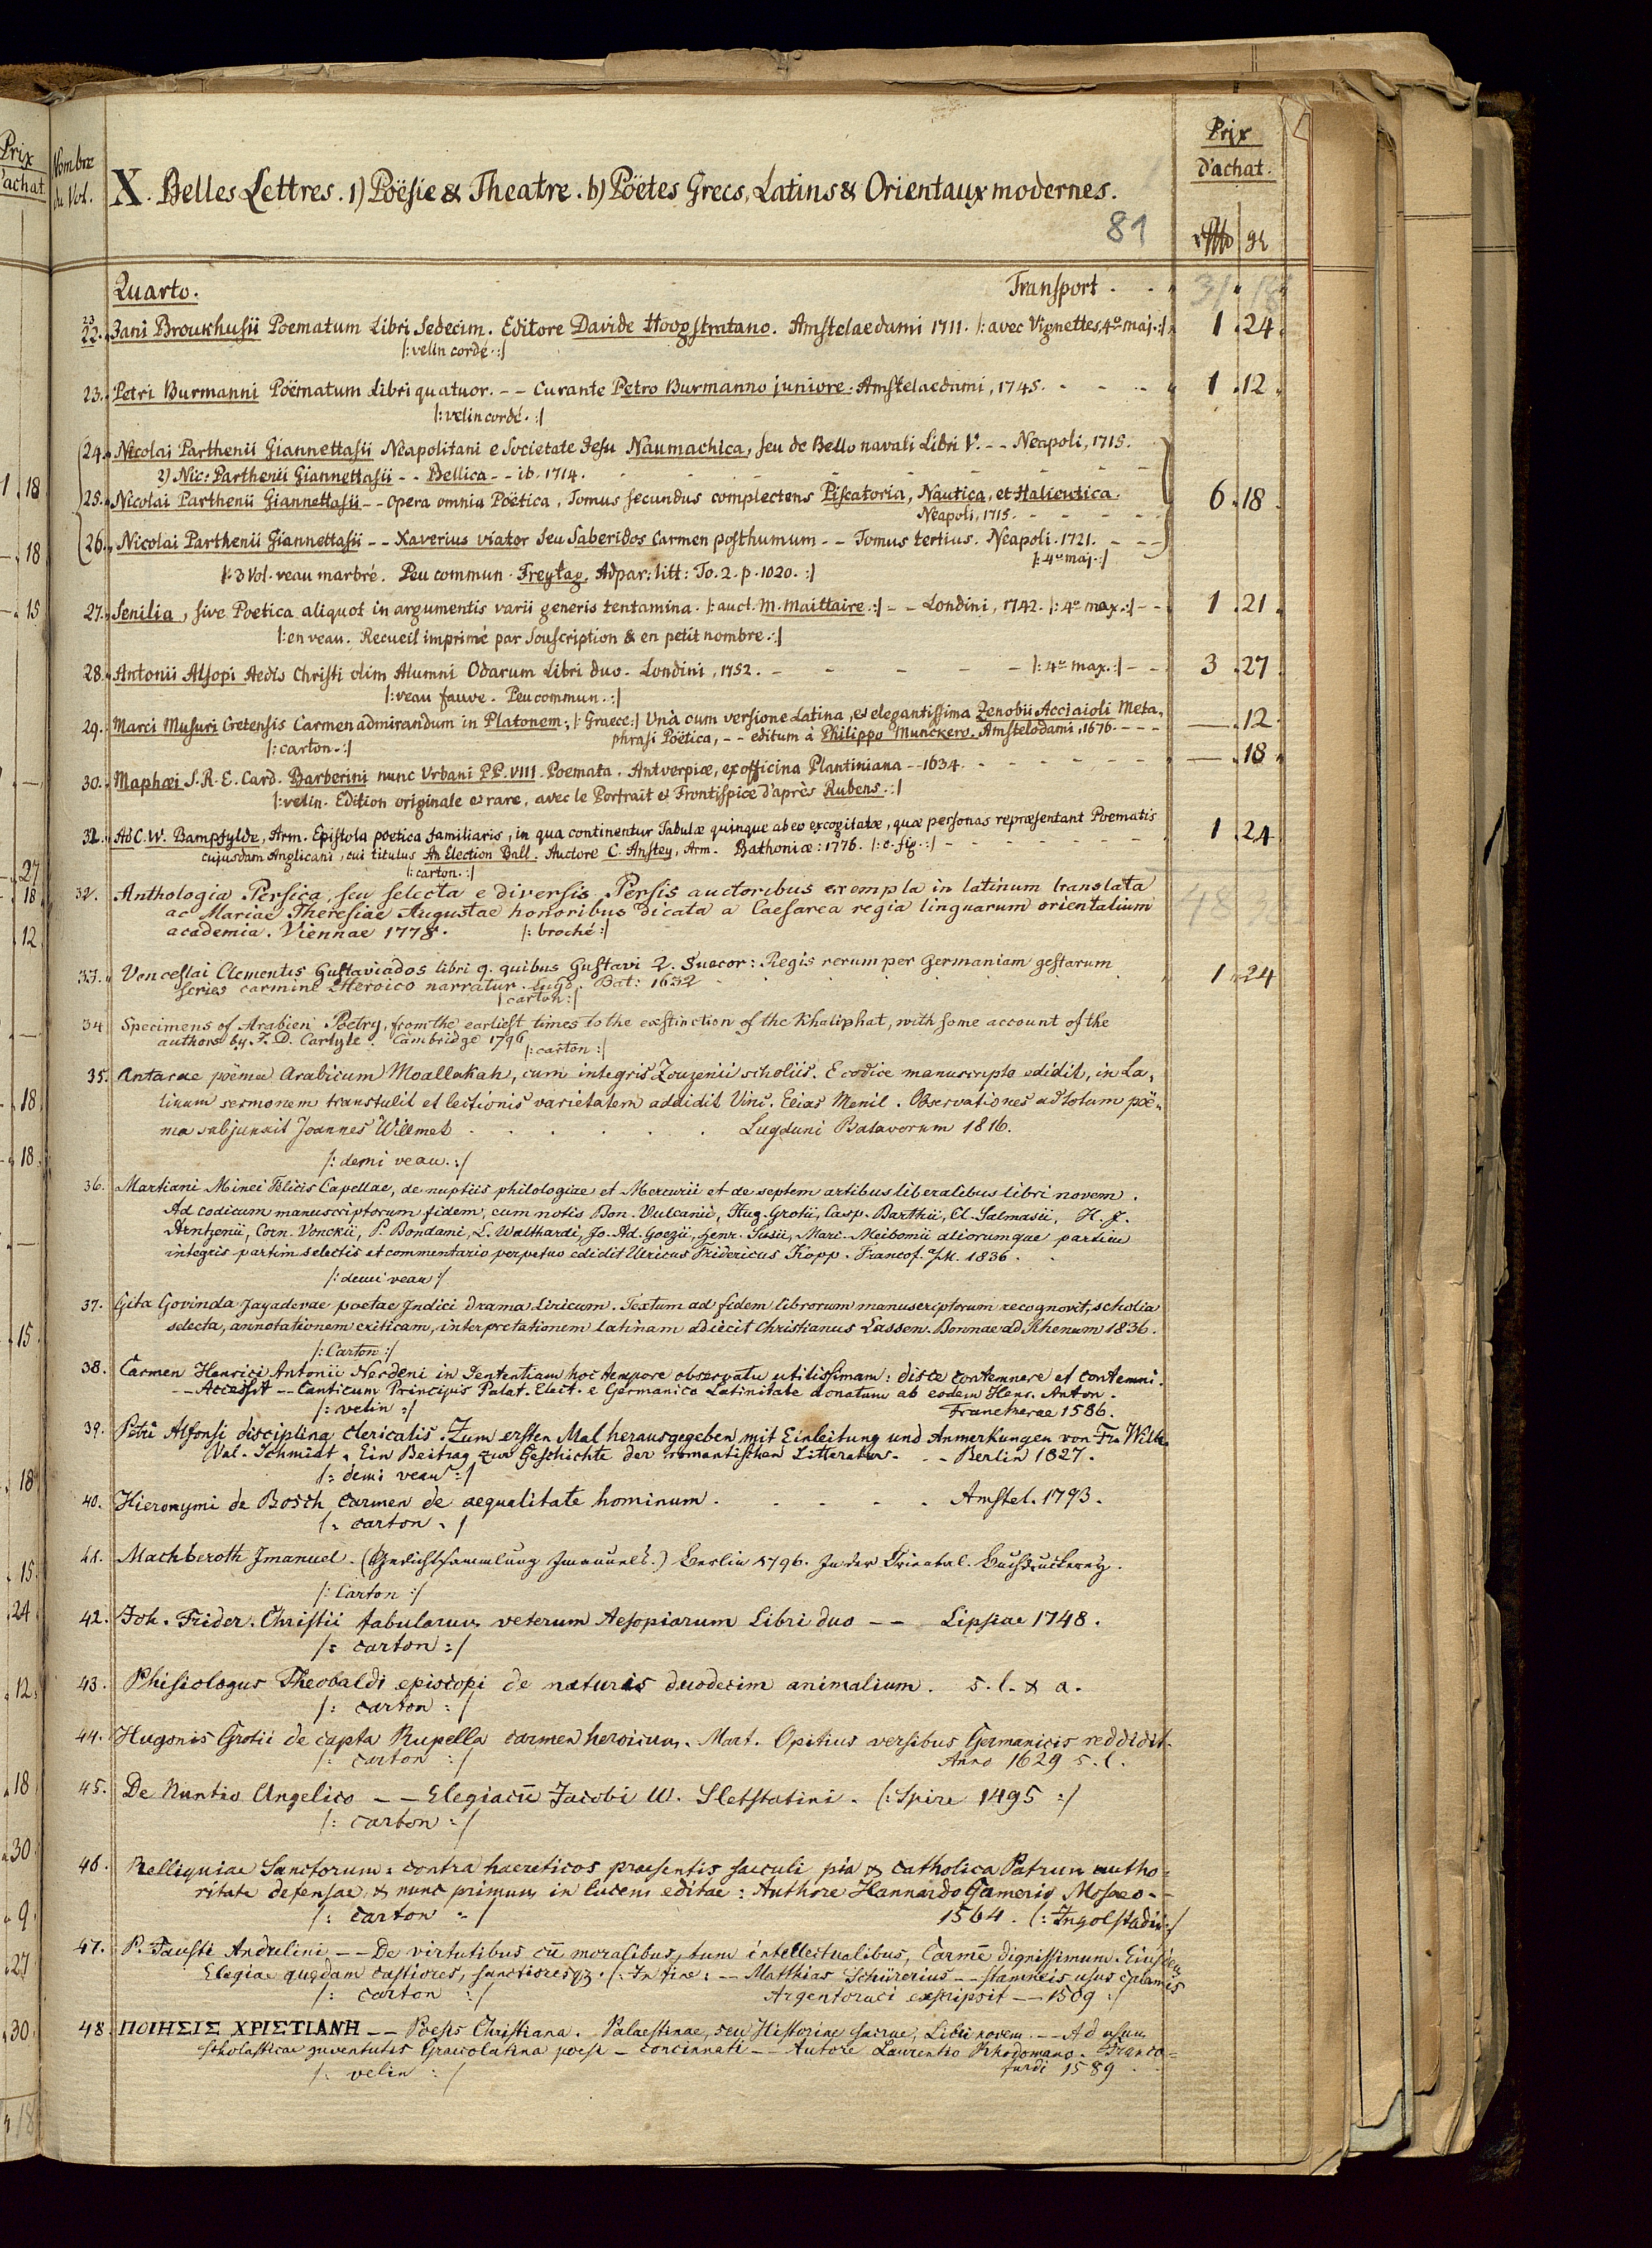 Prix
d'achat.
Nombre
du Vol.
X. Belles Lettres. 1) Poësie & Theatre. b) Pöetes Grecs, Latins & Orientaux modernes.
81
Prix
d'achat.
gr
Quarto. Transport . . 31 . 18
23
22. Jani Broukhusii Poematum Libri Sedecim. Editore Davide Hoogstratano. Amstelaedami 1711. |: avec Vignettes, 4º maj. :| 1 . 24
|: velin cordé. :|
23. Petri Burmanni Poëmatum Libri quatuor. -- Curante Petro Burmanno juniore. Amstelaedami, 1745. 1 . 12
|: velin cordé. :|
24. Nicolai Parthenii Giannettasii Neapolitani e Societate Jesu Naumachica, seu de Bello navali Libri V. -- Neapoli, 1715.
2) Nic: Parthenii Giannettasii -- Bellica -- ib. 1714.
25. Nicolai Parthenii Giannettasii -- Opera omnia Poëtica, Tomus secundus complectens Piscatoria, Nautica, et Halieutica. 6 . 18
Neapoli, 1715.
26. Nicolai Parthenii Giannettasii -- Xaverius viator seu Saberidos Carmen posthumum -- Tomus tertius. Neapoli. 1721. --
|: 4º maj. :|
|: 3 Vol. veau marbré. Peu commun. Freytag. Adpar: litt: To. 2. p. 1020. :|
27. Senilia, sive Poetica aliquot in argumentis varii generis tentamina. |: auct. M. Maittaire. :| -- Londini, 1742. |: 4º max. :| -- 1 . 21
|: en veau. Recueil imprimé par Souscription & en petit nombre. :|
28. Antonii Alsopi Aedis Christi olim Alumni Odarum Libri duo. Londini, 1752. |: 4º max. :| -- 3 . 27
|: veau fauve. Peu commun. :|
29. Marci Musuri Cretensis Carmen admirandum in Platonem, |: Graece :| Unà cum versione Latina, et elegantissima Zenobii Acciaioli Meta- — . 12
phrasi Poëtica, -- editum à Philippo Munckero. Amstelodami, 1676. ---
|: carton. :|
30. Maphæi S. R. E. Card. Barberini nunc Urbani PP. VIII. Poemata. Antverpiæ, ex officina Plantiniana -- 1634. — . 18
|: velin. Edition originale et rare, avec le Portrait et Frontispice d'après Rubens. :|
31. Ad C. W. Bampfylde, Arm. Epistola poetica familiaris, in qua continentur Tabulæ quinque ab eo excogitatæ, quæ personas repræsentant Poematis 1 . 24
cujusdam Anglicani, cui titulus An Election Ball. Auctore C. Anstey, Arm. Bathoniæ: 1776. |: c. fig. :|
|: carton. :|
32. Anthologia Persica, seu selecta e diversis Persis auctoribus exempla in latinum translata
ac Mariae Theresiae Augustae honoribus dicata a Caesarea regia linguarum orientalium
academia. Viennae 1778. |: broché :|
33. Vencеslai Clementis Gustaviados libri 9. quibus Gustavi 2. Suecor: Regis rerum per Germaniam gestarum 1 . 24
series carmine Heroico narratur. Lugd. Bat: 1632
|: carton :|
34 Specimens of Arabien Poetry, from the earliest times to the exstinction of the Khaliphat, with some account of the
authors by F. D. Carlyle. Cambridge 1796
|: carton :|
35. Antarae poëma Arabicum Moallakah, cum integris Zouzenii scholiis. E codice manuscripto edidit, in La-
tinum sermonem transtulit et lectionis varietatem addidit Vinc. Elias Menil. Observationes ad totum poë-
ma subjunxit Joannes Willmet . . . . . . Lugduni Batavorum 1816.
|: demi veau. :|
36. Martiani Minei Felicis Capellae, de nuptiis philologiae et Mercurii et de septem artibus liberalibus libri novem.
Ad codicum manuscriptorum fidem, cum notis Bon. Vulcanii, Hug. Grotii, Casp. Barthii, Cl. Salmasii, H. J.
Arntzenii, Corn. Vonckii, P. Bondami, L. Walthardi, Jo. Ad. Goezii, Henr. Susii, Marc. Meibomii aliorumque partim
integris partim selectis et commentario perpetuo edidit Ulricus Fridericus Kopp. Francof. a/M. 1836.
|: demi veau :|
37. Gita Govinda Jayadevae poetae Indici drama liricum. Textum ad fidem librorum manuscriptorum recognovit, scholia
selecta, annotationem criticam, interpretationem latinam adiecit Christianus Lassen. Bonnae ad Rhenum 1836.
|: Carton :|
38. Carmen Henrici Antonii Nerdeni in Sententiam hoc tempore observatu utilissimam: disce contemnere et contemni.
-- Accessit -- Canticum Principis Palat. Elect. e Germanico Latinitate donatum ab eodem Henr. Anton.
|: velin :| Franekerae 1586.
39. Petri Alfonsi disciplina clericalis. Zum ersten Mal herausgegeben mit Einleitung und Anmerkungen von Fr. Wilh.
Val. Schmidt. Ein Beitrag zur Geschichte der romantischen Litteratur. . . Berlin 1827.
|: demi veau :|
40. Hieronymi de Bosch Carmen de aequalitate hominum. . . . . . Amstel. 1793.
|: carton :|
41. Machberoth Imanuel. (Gedichtsammlung Immanuels.) Berlin 1796. In der Orientral. Buchdruckerey.
|: Carton :|
42. Joh. Frider. Christii fabularum veterum Aesopiarum Libri duo -- Lipsiae 1748.
|: carton :|
43. Phisiologus Theobaldi episcopi de naturis duodecim animalium. s. l. & a.
|: carton :|
44. Hugonis Grotii de capta Rupella carmen heroicum. Mart. Opitius versibus Germanicis reddidit.
|: carton :| Anno 1629 s. l.
45. De Nuntio Angelico -- Elegiacū Jacobi W. Sletstatini. (: Spire 1495 :)
|: carton :|
46. Relliquiae Sanctorum: contra haereticos praesentis saeculi pia & catholica Patrum autho-
ritate defensae, & nunc primum in lucem editae: Authore Hannardo Gamerio Mosaeo. -
|: carton :| 1564. (: Ingolstadii :)
47. P. Fausti Andrelini -- De virtutibus cū moralibus, tum intellectualibus, Carmē dignissimum. Eiusdem
Elegiae quędam castiores, sanctioresqꝫ. (: In fine: -- Matthias Schürerius -- stamneis usus calamis
|: carton :| Argentoraci exscripsit -- 1509 :/
48. ΠΟΙΗΣΙΣ ΧΡΙΣΤΙΑΝΗ -- Poesis Christiana. Palaestinae, seu Historiae sacrae, Libri novem. -- Ad usum
scholasticae juventutis Graecolatina poesi - concinnati -- Autore Laurentio Rhodomano. Franco-
|: velin :| furdi 1589.